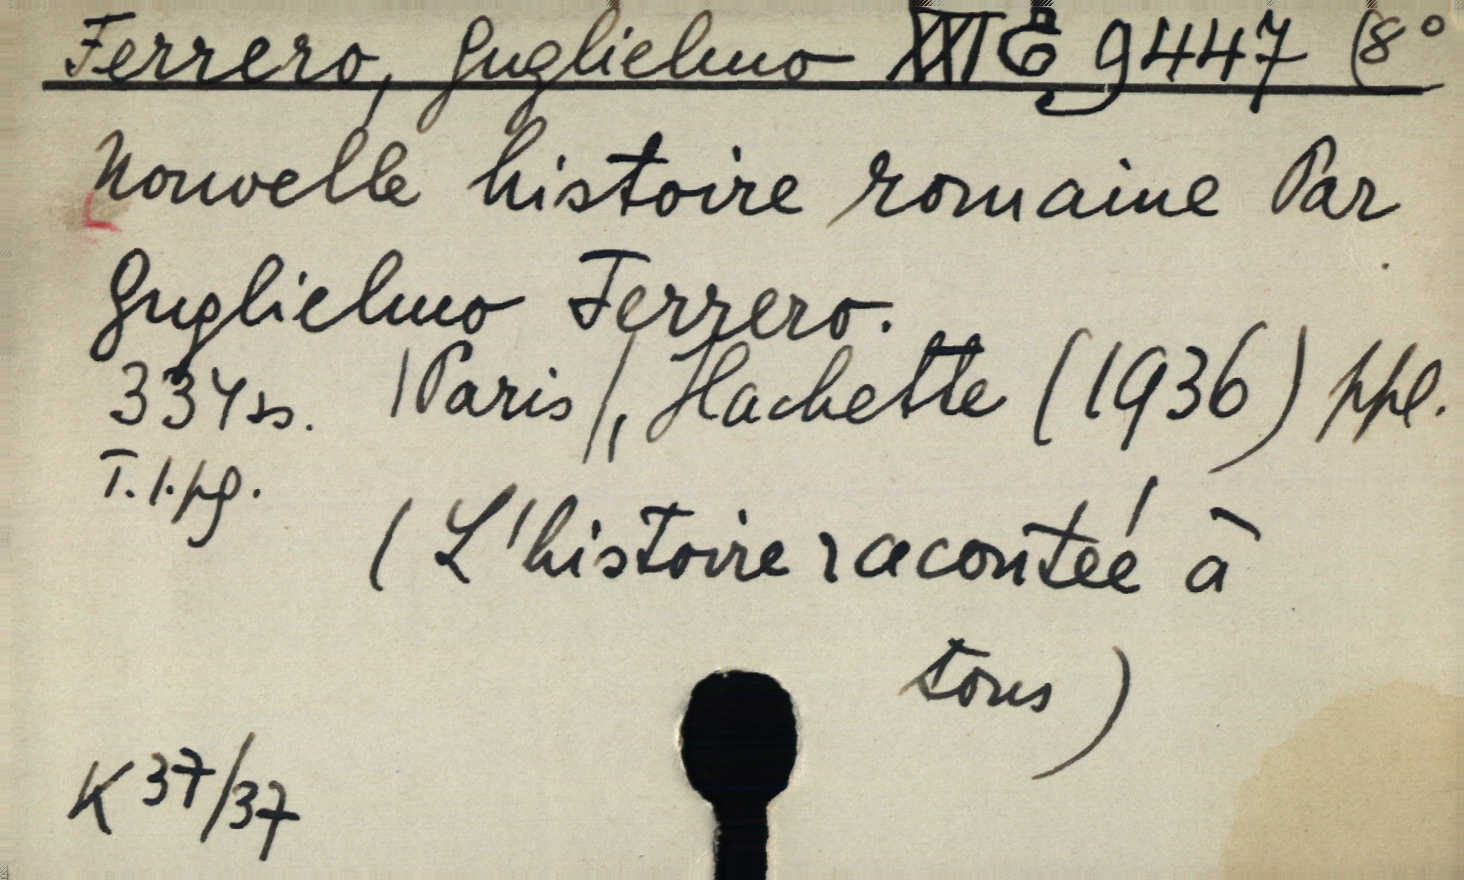 Ferrero, Guglielmo XXI E 9447 (8°
Nouvelle histoire romaine Par
Guglielmo Ferrero.
334 ss. |Paris|, Hachette (1936) ppl.
T. 1. pg.
(L'histoire racontéé à
tous)
K 37/37